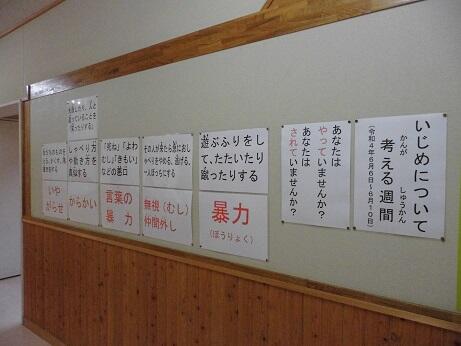 いじめについて
考える週間
かんが
しゅうかん
(令和4年6月6日~6月10日)
あなたは
やっていませんか?
あなたは
されていませんか?
遊ぶふりをし
て、たたいたり
蹴ったりする
暴力
(ぼうりょく)
その人が来たら急におし
ゃべりをやめる、逃げる、
一人ぼっちにする
無視(むし)
仲間外し
「死ね」「よわ
むし」「きもい」
などの悪口
言葉の
暴力
しゃべり方
や動き方を
真似する
からかい
失敗したり、人と
違っていることを
笑ったりする
いや
がらせ